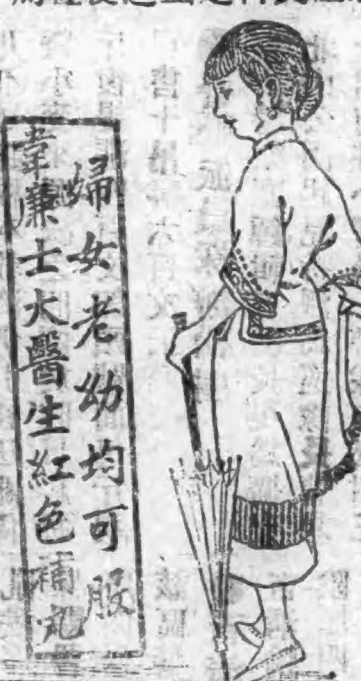 婦女老幼均可服
韋廉士大醫生紅色補丸